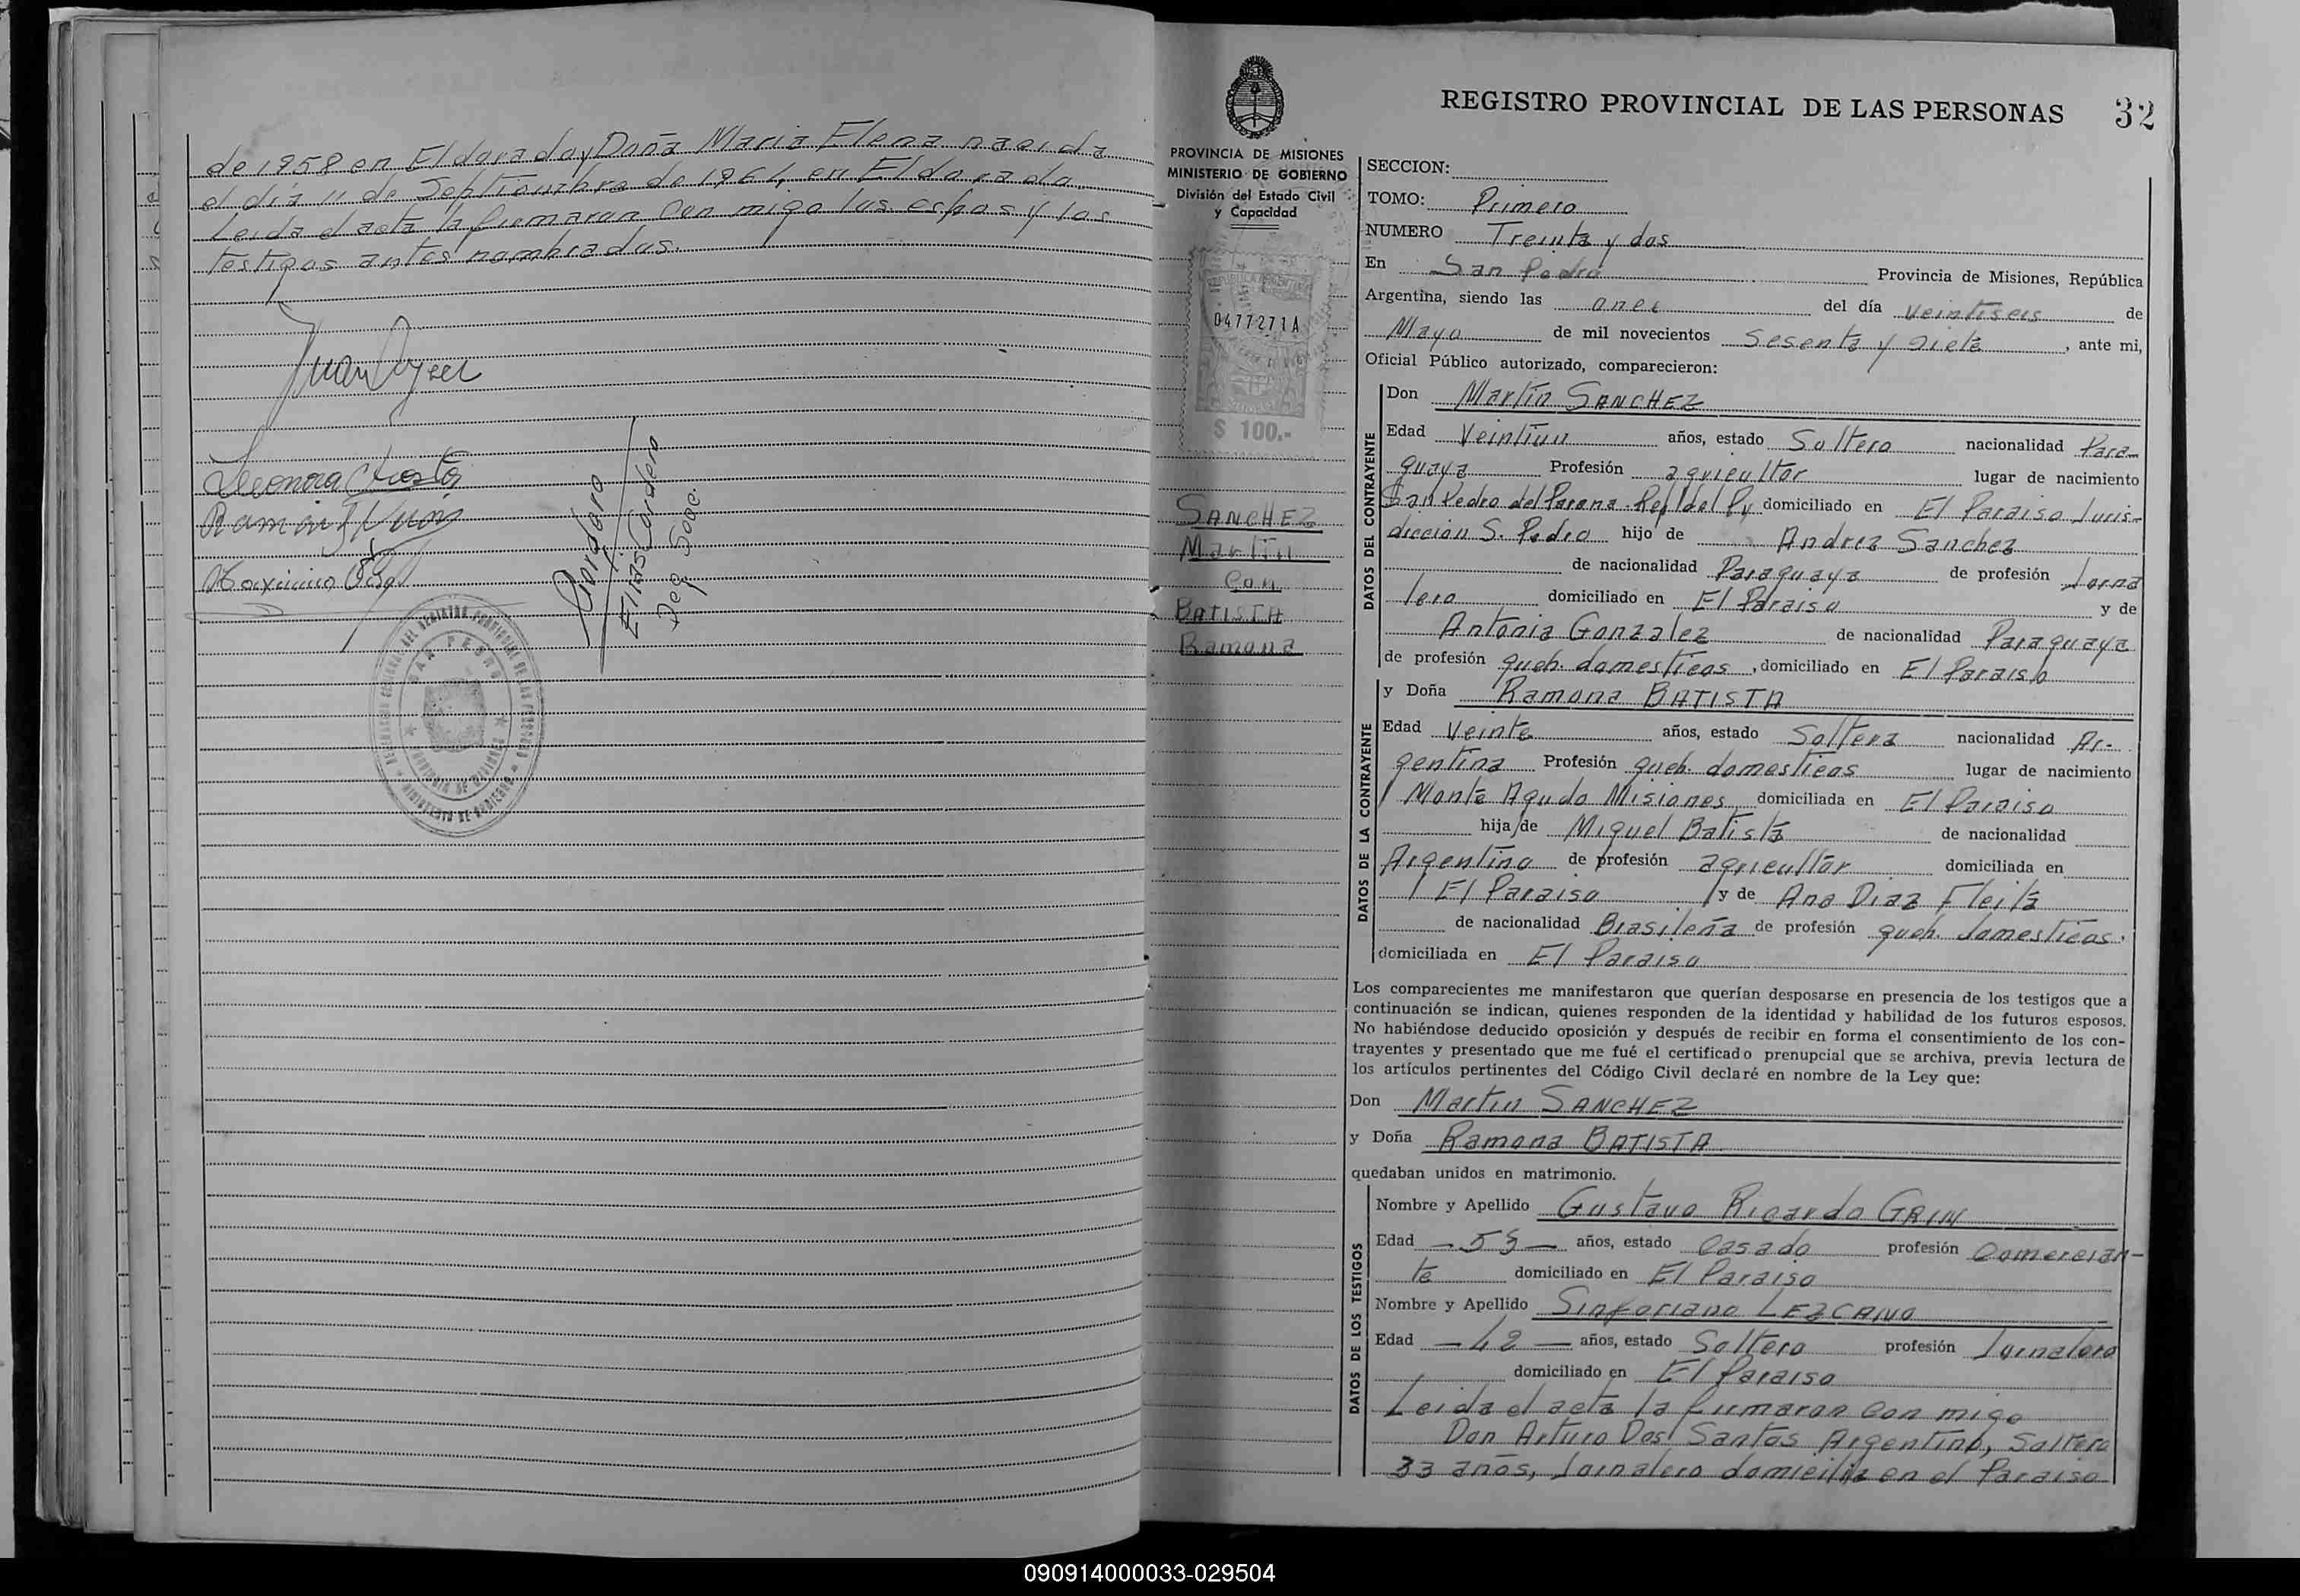 de 1958 en Eldorado y Doña Maria Elena nacida
el día 11 de Septiembre de 1961, en Eldorado.
Leida el acta la firmaron con migo los esposos y los
testigos antes nombrados.
Cordero
Elias Cordero
SAN PEDRO
REGISTRO PROVINCIAL DE LAS PERSONAS 32
PROVINCIA DE MISIONES
MINISTERIO DE GOBIERNO
División del Estado Civil
y Capacidad
0477271A
$ 100.-
SANCHEZ
Martin
Con
BATISTA
Ramona
SECCION:
TOMO: Primero
NUMERO Treinta y dos
En San Pedro Provincia de Misiones, República
Argentina, siendo las once del día veintiseis de
Mayo de mil novecientos Sesenta y siete, ante mi,
Oficial Público autorizado, comparecieron:
DATOS DEL CONTRAYENTE
Don Martin SANCHEZ
Edad Veintiun años, estado Soltero nacionalidad Para-
guaya Profesión agricultor lugar de nacimiento
San Pedro del Parana. Rep. del Py domiciliado en El Paraiso Juris-
diccion S. Pedro hijo de Andrez Sanchez
de nacionalidad Paraguaya de profesión Jorna
lero domiciliado en El Paraiso y de
Antonia Gonzalez de nacionalidad Paraguaya
de profesión queh. domesticos, domiciliado en El Paraiso
DATOS DE LA CONTRAYENTE
y Doña Ramona BATISTA
Edad Veinte años, estado Soltera nacionalidad Ar-
gentina Profesión queh. domesticos lugar de nacimiento
Monte Agudo Misiones domiciliada en El Paraiso
hija de Miguel Batista de nacionalidad
Argentino de profesión agricultor domiciliada en
El Paraiso y de Ana Diaz Fleita
de nacionalidad Brasileña de profesión queh. domesticos.
domiciliada en El Paraiso
Los comparecientes me manifestaron que querían desposarse en presencia de los testigos que a
continuación se indican, quienes responden de la identidad y habilidad de los futuros esposos.
No habiéndose deducido oposición y después de recibir en forma el consentimiento de los con-
trayentes y presentado que me fué el certificado prenupcial que se archiva, previa lectura de
los artículos pertinentes del Código Civil declaré en nombre de la Ley que:
Don Martin SANCHEZ
y Doña Ramona BATISTA
quedaban unidos en matrimonio.
DATOS DE LOS TESTIGOS
Nombre y Apellido Gustavo Ricardo GRIN
Edad - 53 - años, estado Casado profesión Comercian-
te domiciliado en El Paraiso
Nombre y Apellido Sinforiano LEZCANO
Edad - 42 - años, estado Soltero profesión Jornalero
domiciliado en El Paraiso
Leida el acta la firmaron con migo
Don Arturo Dos Santos Argentino, Soltero
33 años, Jornalero domicilia en el Paraiso
090914000033-029504